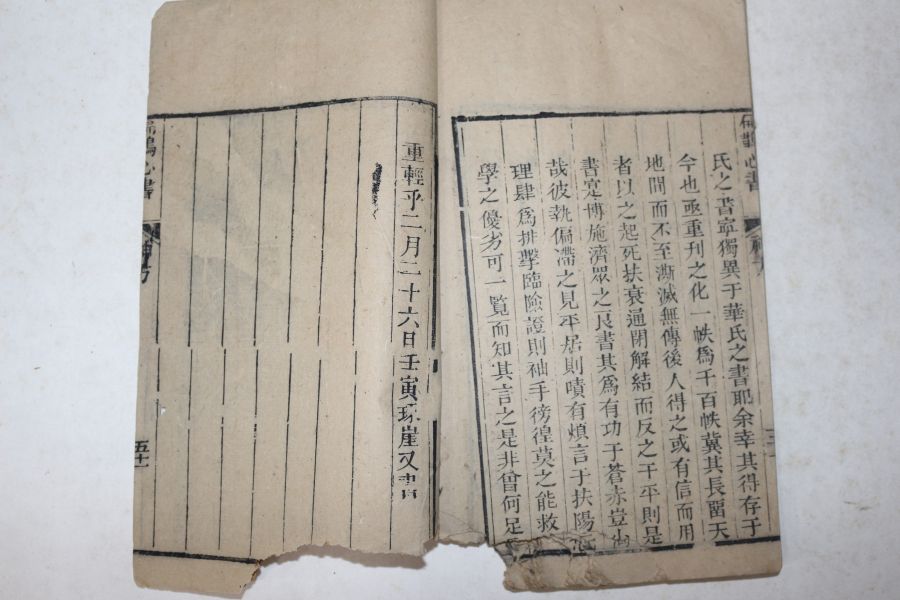 扁鵲心書
神方
氏之書寧獨異于華氏之書耶余幸其得存于
今也亟重刊之化一帙爲千百帙冀其長畱天
地間而不至澌滅無傳後人得之或有信而用
者以之起死扶衰通閉解結而反之于平則是
書寔博施濟眾之良書其爲有功于蒼赤豈
哉彼執偏滯之見平居則嘖有煩言于扶陽
理肆爲排擊臨險證則袖手徬徨莫之能救
學之優劣可一覧而知其言之是非曾何足
重輕乎二月二十六日壬寅琢崖又書
扁鵲心書
神方
五十